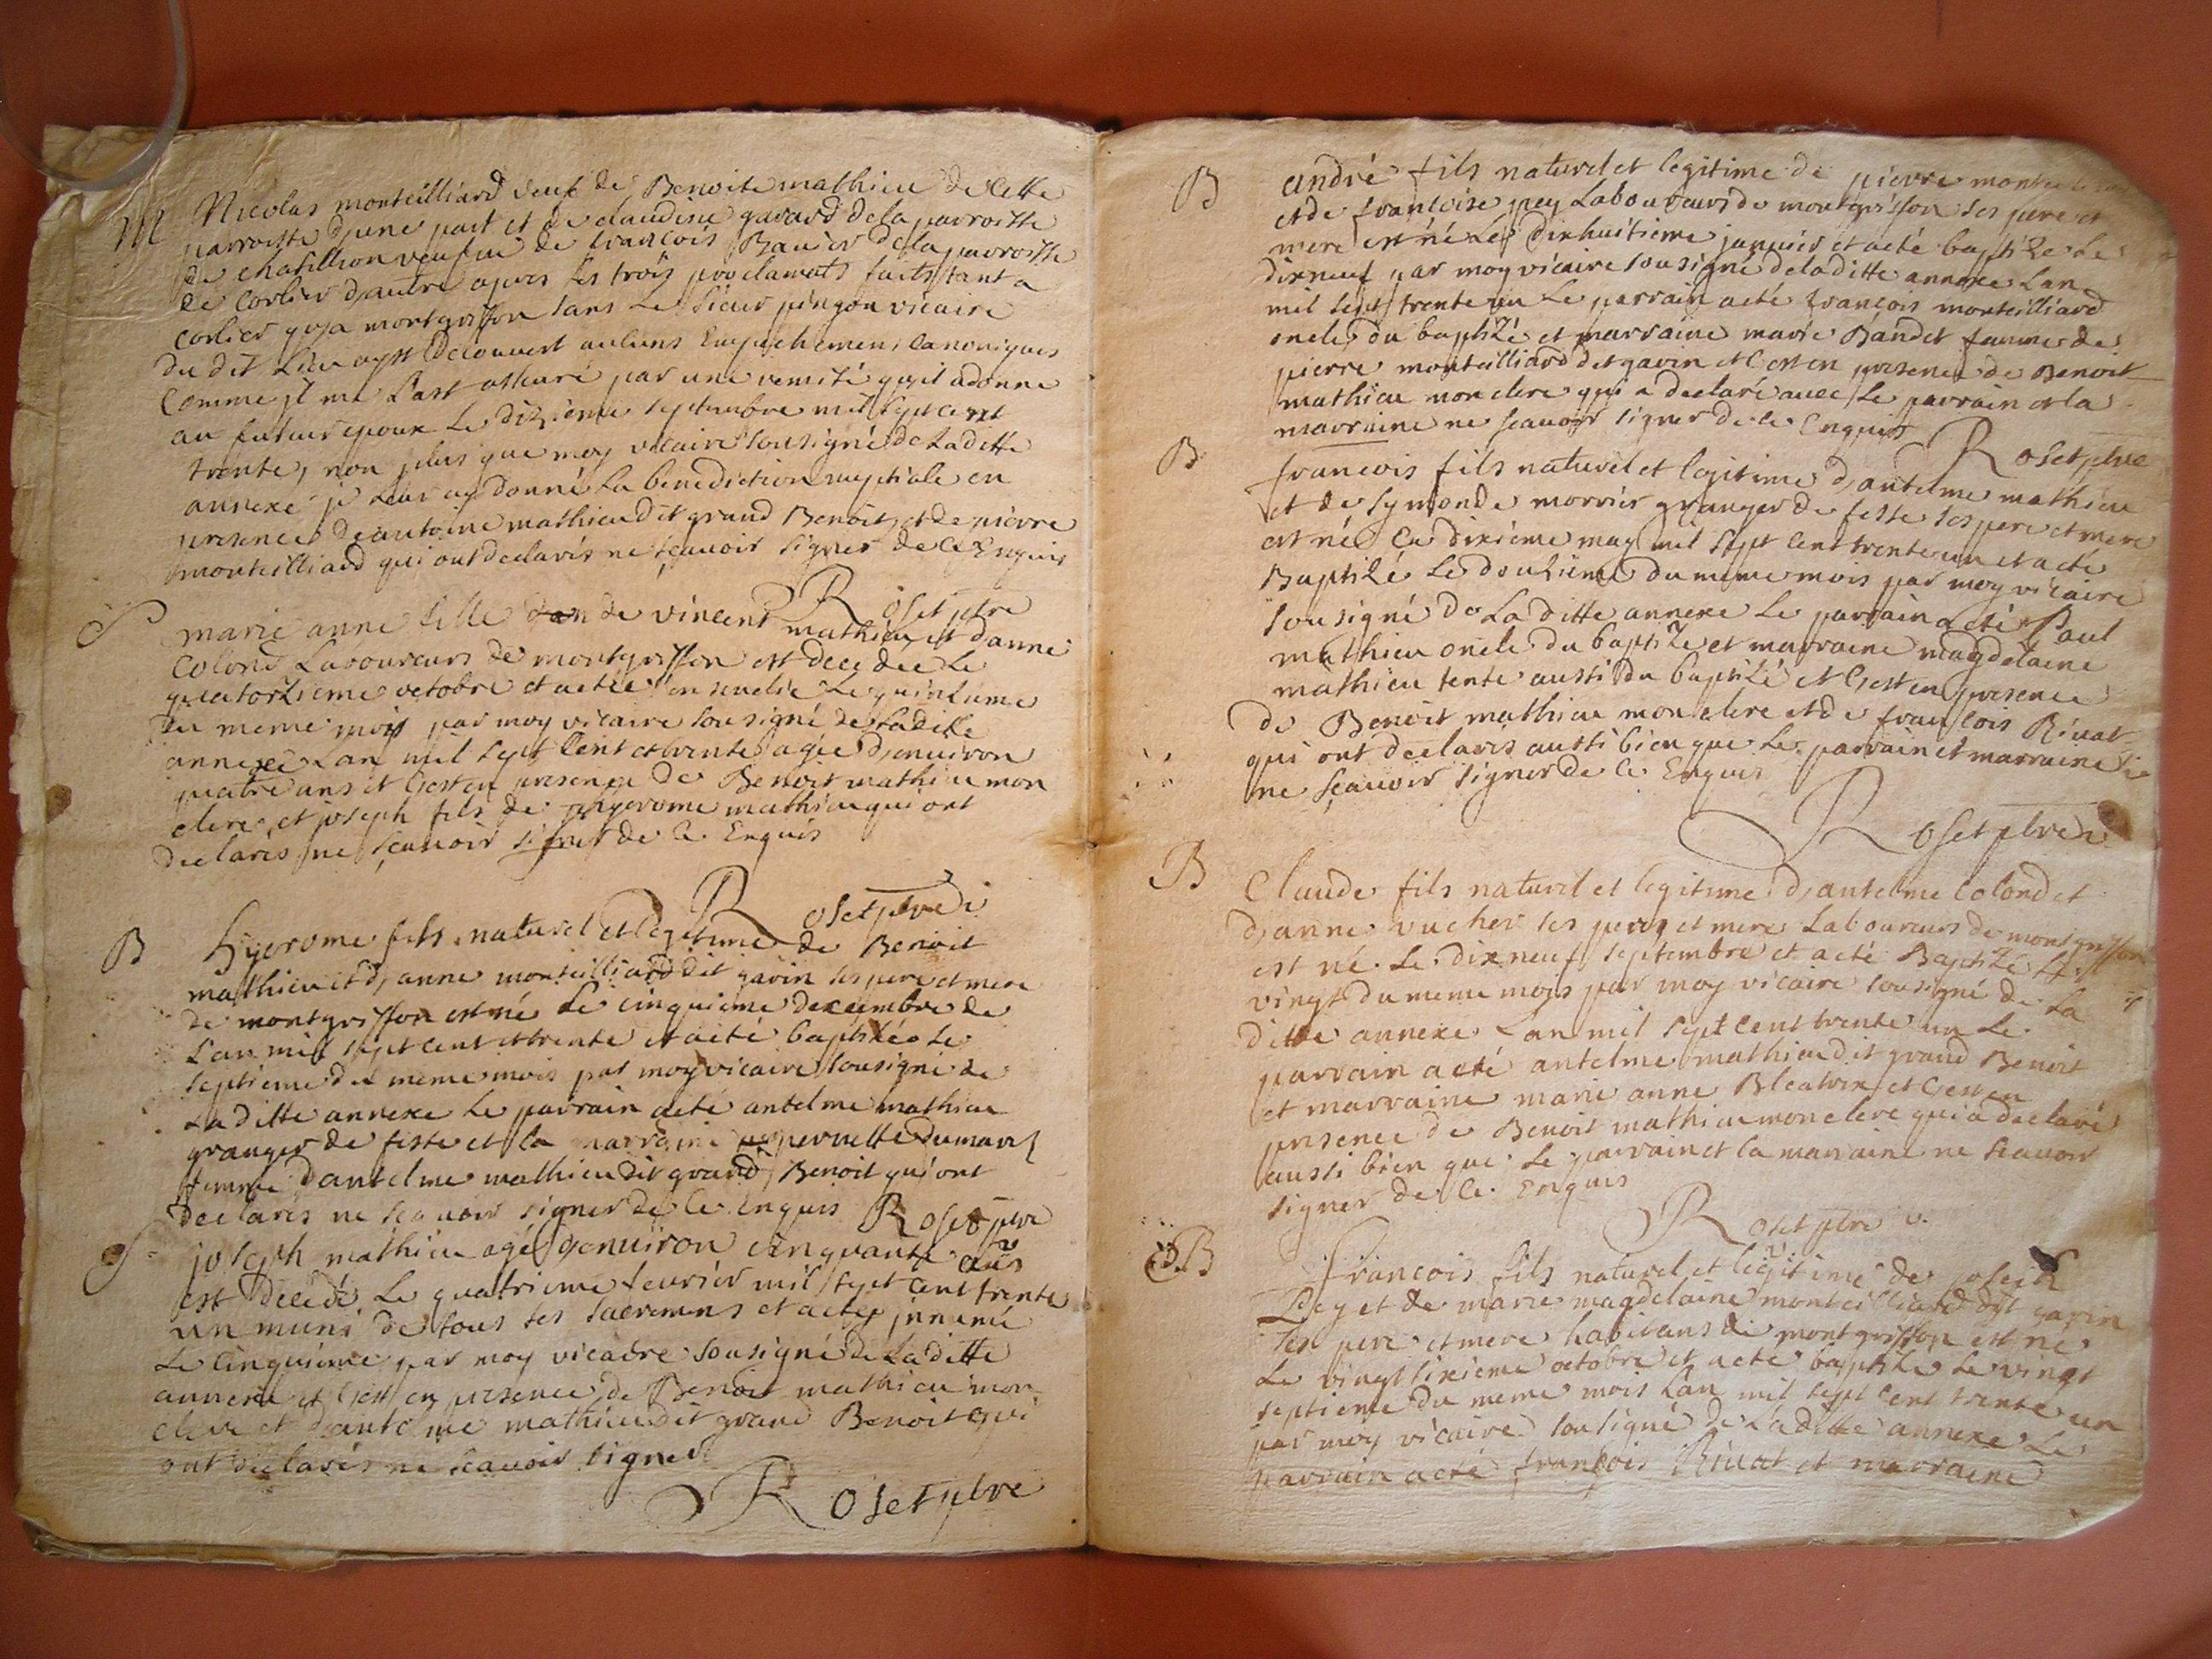 M Nicolas monteilliard veuf de Benoite mathieu de Cette
parroisse d,une part et de claudine gavard dela parroisse
de chatillion veufue de francois Bauier de la parroisse
de Corlier d,autre apres les trois proclamats faits tant a
Corlier qu,a montgriffon sans Le Sieur pingon vicaire
du dit Lieu ayt decouvert auluns Empechemens Canoniques
Comme jl me L'ast asseuré par une remise qu,il adonne
au futur epoux Le dizieme septembre mil sept cent
trente, non plus que moy vicaire sousigné de Laditte
annexe je Leur ay donné La benediction nuptiale en
presence de antoine mathieu dit grand Benoit et de pierre
monteilliard qui ont declarés ne sçauoir signer de ce Enquis
Roset ptre
S marie anne fille de vincent mathieu et d'anne
Colond Laboureurs de montgriffon est decedée Le
quatorzieme octobre et aetée ensevelie Le quinzieme
du meme mois par moy vicaire sousigné de Laditte
annexe Lan mil sept Cent et trente agée d,enuiron
quatre ans et C,est en presence de Benoit mathieu mon
clerc, et joseph fils de hyerome mathieu qui ont
declarés ne sçauoir signer de Ce Enquis
Roset ptre
B hyerome fils naturel et legitime de Benoit
mathieu et d,anne monteilliard dit gavin ses pere et mere
de montgriffon est né Le cinquieme decembre de
L'an mil sept cent et trente et aeté baptizé Le
septieme du meme mois par moy vicaire sousigné de
Laditte annexe Le parrain aeté antelme mathieu
granger de feste et la marraine pernette Dumarez
femme d'antelme mathieu dit grand Benoit qui ont
declarés ne sçauoir signer de Ce Enquis Roset ptre
S joseph mathieu agé d,enuiron cinquante ans
est decedé Le quatrieme feurier mil sept cent trente
un muni de tous ses sacremens et aeté jnnumé
Le Cinquieme par moy vicaire sousigné de Laditte
annexe et C,est en presence de Benoit mathieu mon
clerc et d'antelme mathieu dit grand Benoit qui
ont declarés ne sçauoir signer
Roset ptre
B andré fils naturel et legitime de pierre
et de francoise pey Laboureurs de montgriffon ses pere et
mere est né Le dixhuitieme januier et aeté baptizé Le
dixneuf par moy vicaire sousigné de laditte annexe Lan
mil sept trente un Le parrain aeté francois monteilliard
oncle du baptizé et marraine marie Bandet femme de
pierre monteilliard dit gavin et C,est en presence de Benoit
mathieu mon clerc qui a declaré auec Le parrain et la
marraine ne scauoir signer de ce Enquis
Roset ptre
B francois fils naturel et legitime d,antelme mathieu
et de symonde morrier granger de feste ses pere et mere
est né Le dixieme may mil sept Cent trente un et aeté
Baptizé Le douzieme du meme mois par moy vicaire
sousigné de Laditte annexe Le parrain aeté Paul
mathieu oncle du baptizé et marraine magdelaine
mathieu tente aussi du baptizé et C,est en presence
de Benoit mathieu mon clerc et de francois Riuat
qui ont declarés aussi bien que Le parrain et marraine
ne sçauoir signer de Ce Enquis
Roset ptre
B Claude fils naturel et legitime d,antelme Colond et
d,anne vucher ses pere et mere Laboureurs de montgriffon
est né Le dixneuf septembre et aeté Baptizé Le
vingt du meme mois par moy vicaire sousigné de La
ditte annexe Lan mil sept cent trente un Le
parrain aeté antelme mathieu dit grand Benoit
et marraine marie anne Bleatrix et C,est en
presence de Benoit mathieu mon clerc qui a declaré
aussi bien que Le parrain et la marraine ne scauoir
signer de Ce Enquis
Roset ptre
B Francois fils naturel et legitime de joseph
Pey et de marie magdelaine monteilliard dit gavin
ses pere et mere habitans de montgriffon est né
Le vingt sixieme octobre et aeté baptizé Le vingt
septieme du meme mois Lan mil sept Cent trente un
par moy vicaire sousigné de Laditte annexe Le
parrain aeté francois Riuat et marraine